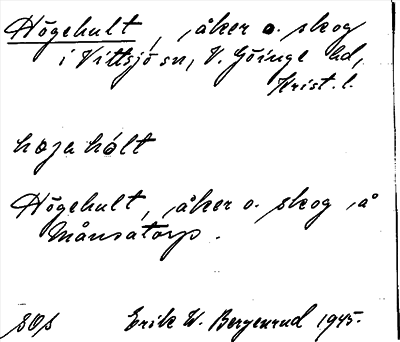 Högehult, åker o. skog
i Vittsjö sn, V. Göinge hd,
Krist. l.
högahölt
Högehult, åker o. skog å
Månsatorp.
SOS Erik W. Bergenrud 1945.